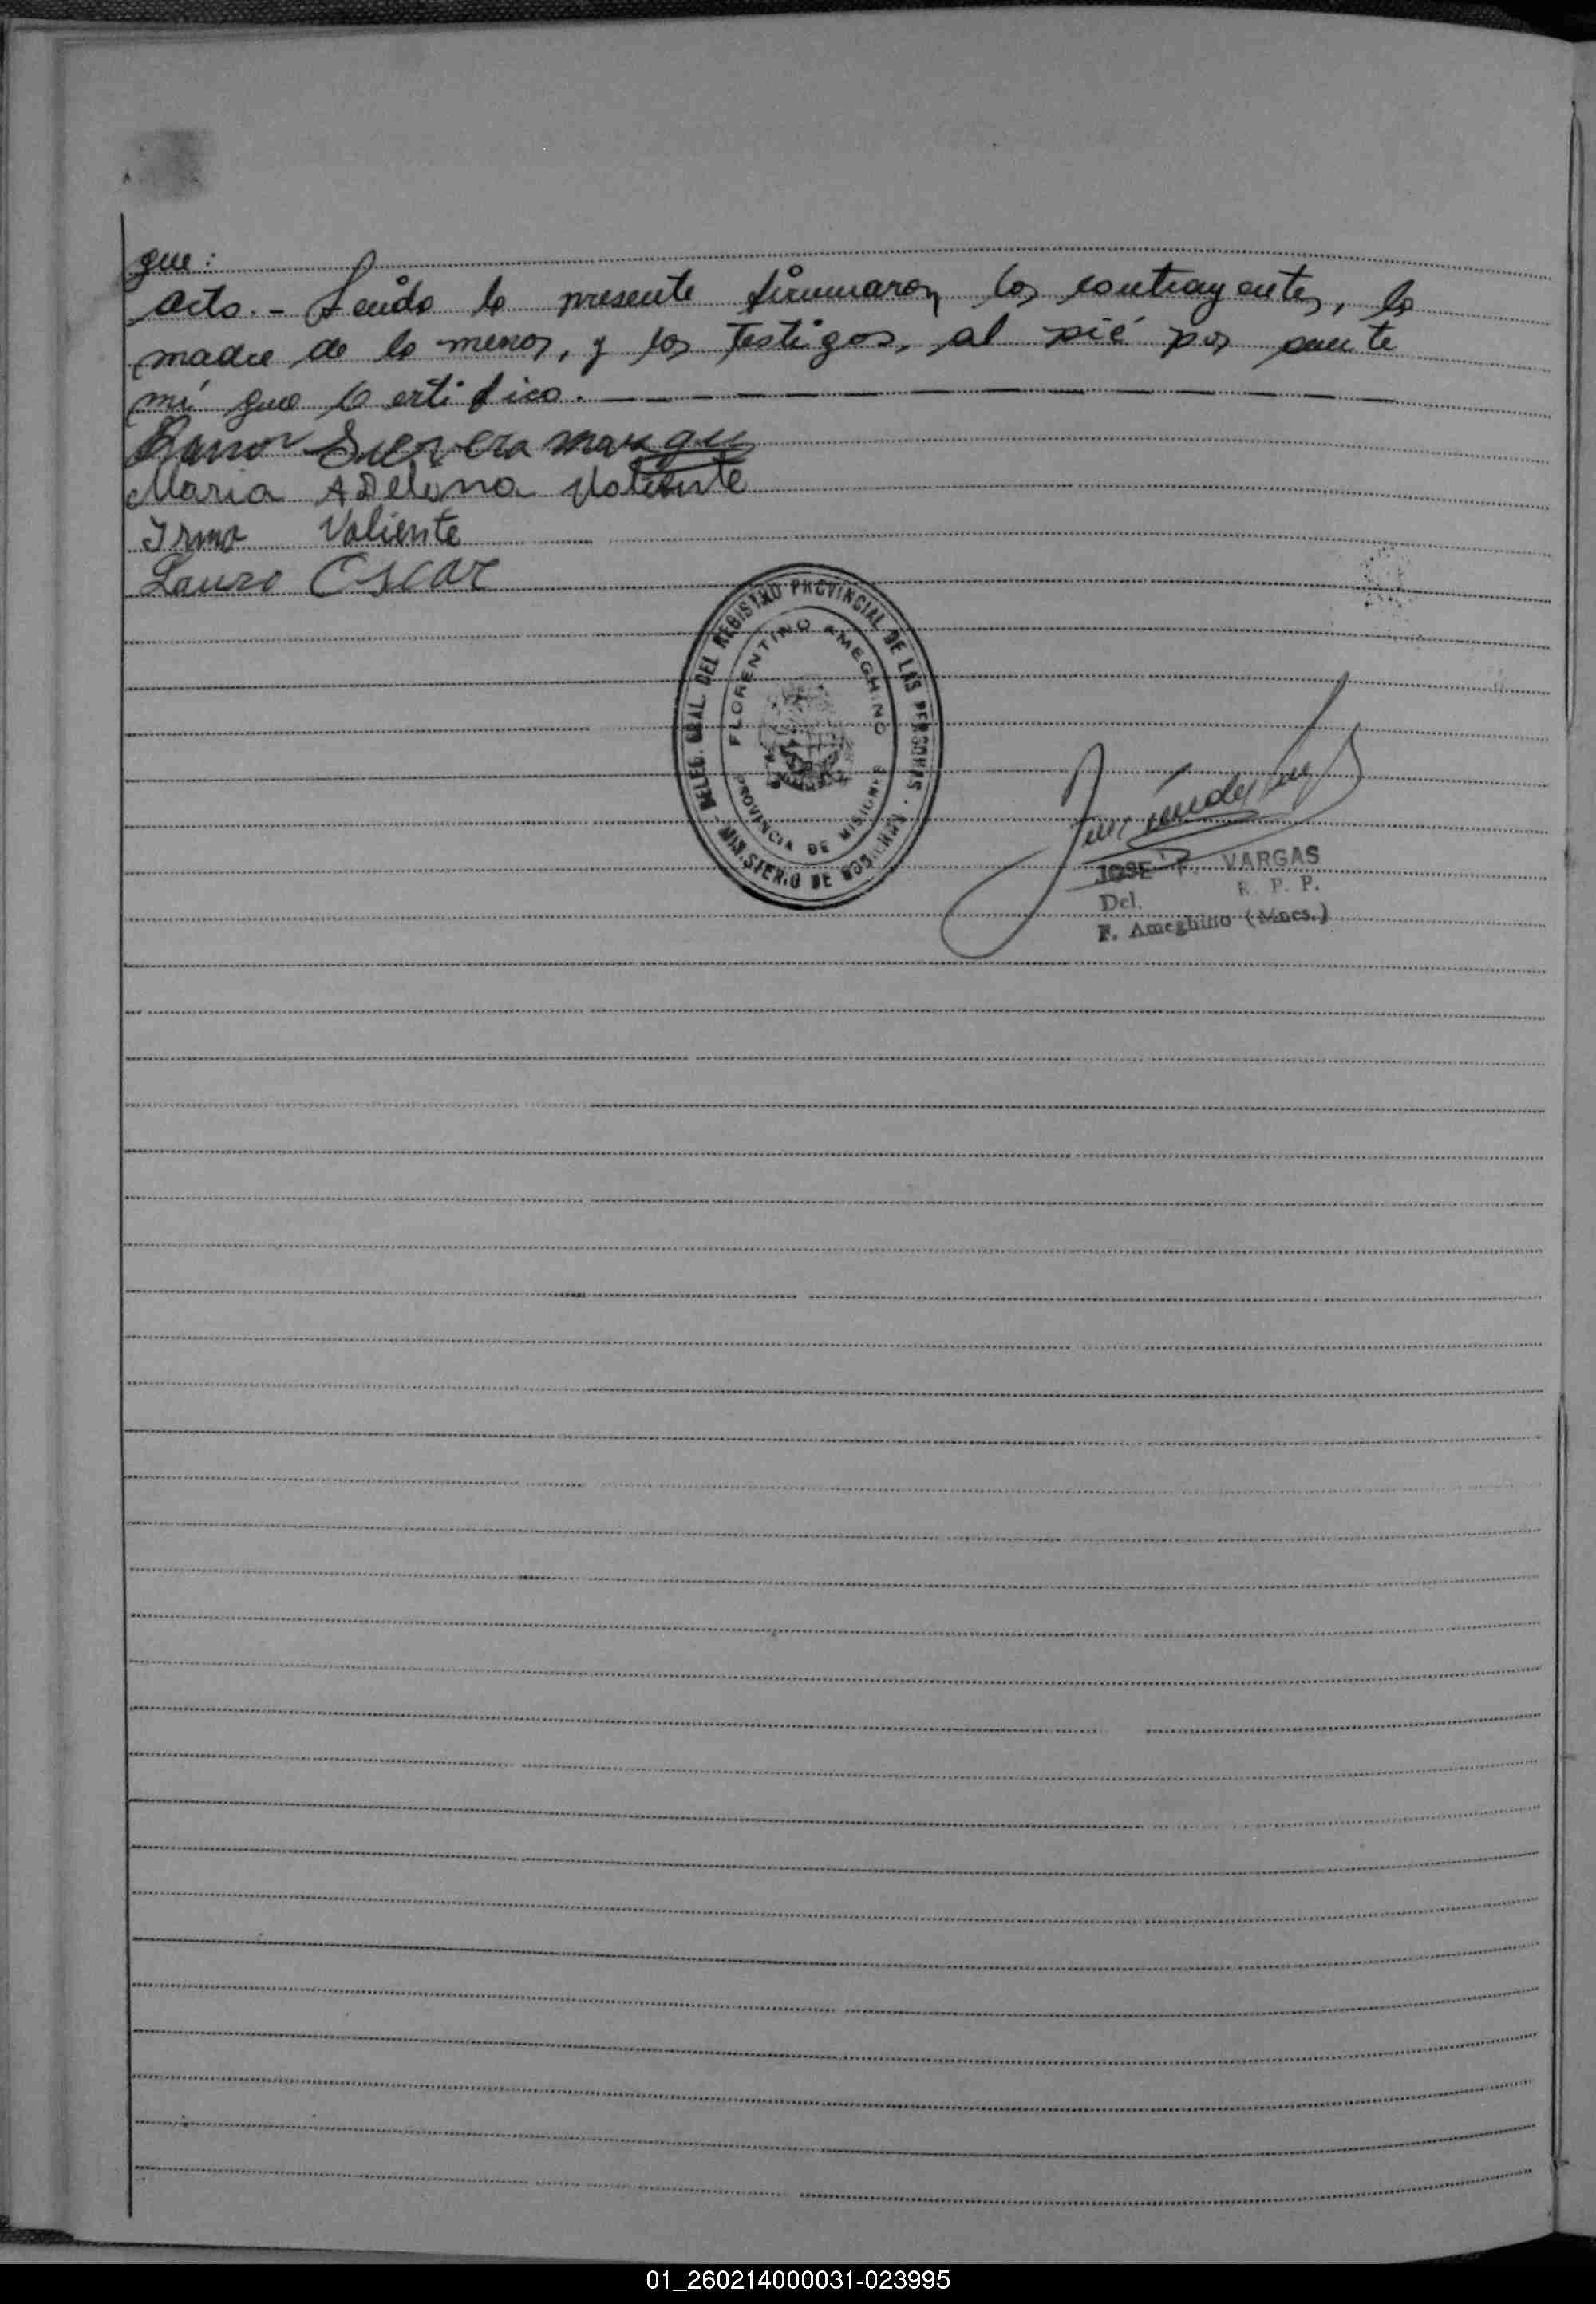 que:
acto.- Leido la presente firmaron los contrayentes, la
madre de la menor, y los testigos, al pié por ante
mí que Certifico.
Ramon
Maria ADelina Valiente
Irma Valiente
Lauro Oscar
DELEG. GRAL. DEL REGISTRO PROVINCIAL DE LAS PERSONAS
MINISTERIO DE GOBIERNO
FLORENTINO AMEGHINO
PROVINCIA DE MISIONES
JOSE F. VARGAS
Del. R. P. P.
F. Ameghino (Mnes.)
01_260214000031-023995